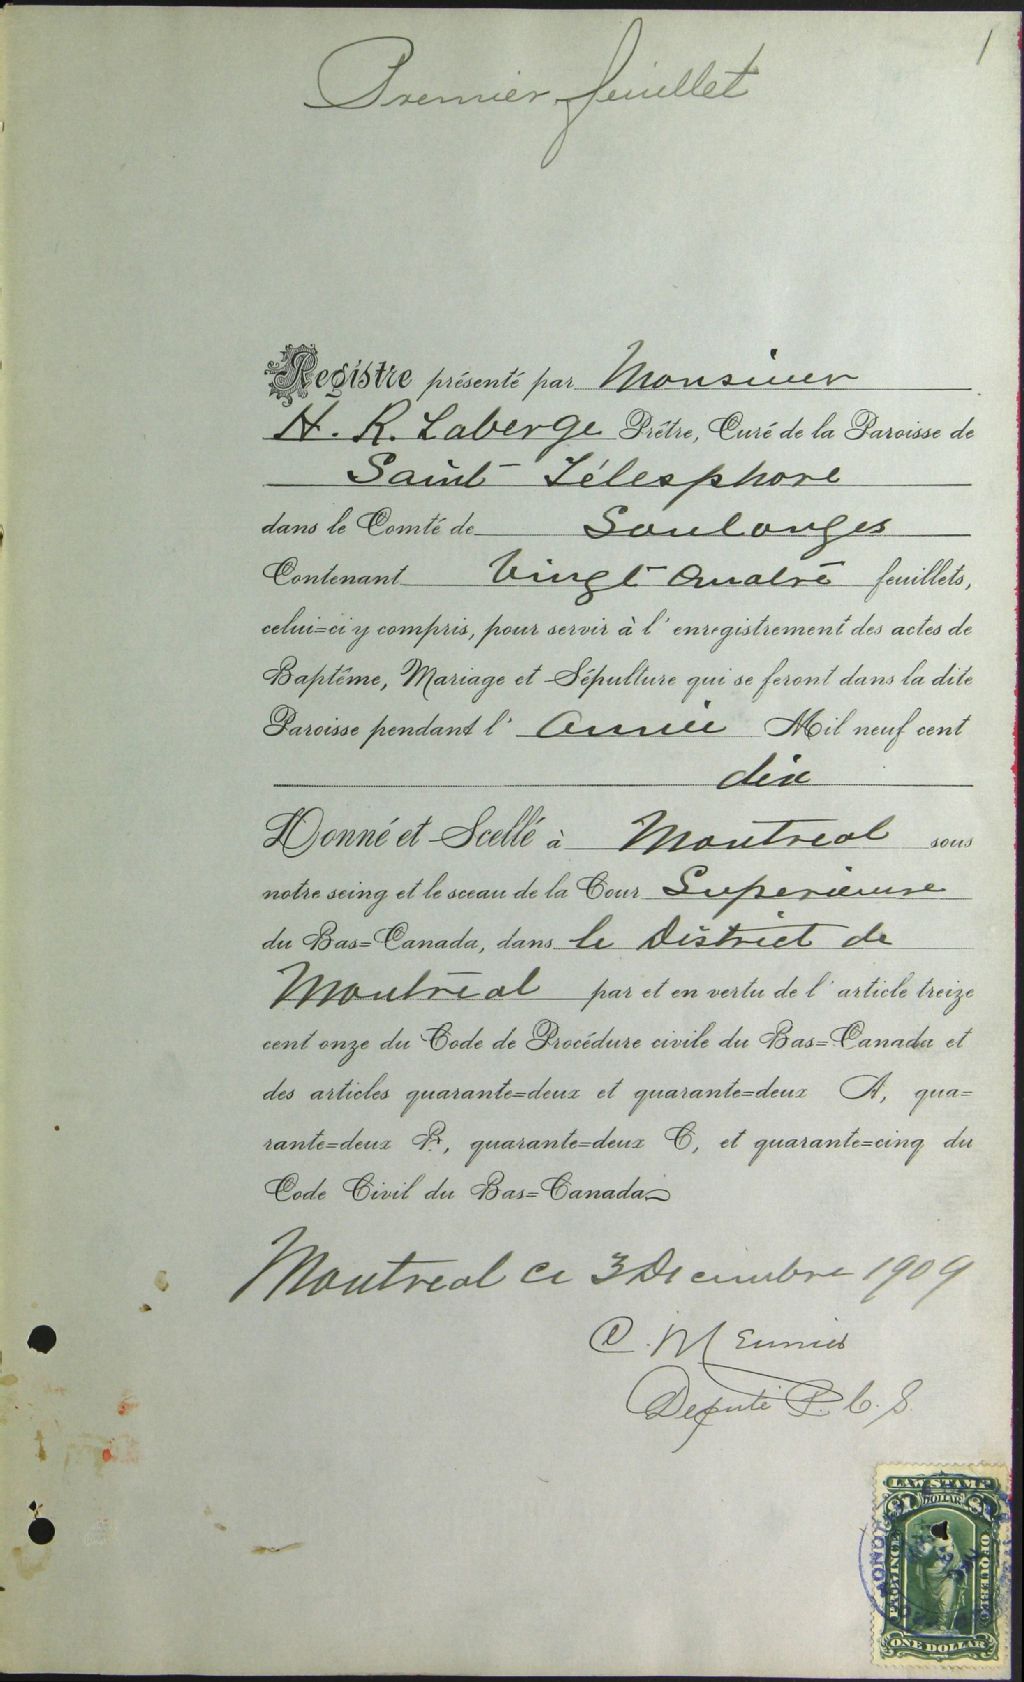 1
Premier feuillet
Registre présenté par Monsieur
H. R. Laberge Prêtre, Curé de la Paroisse de
Saint Télesphore
dans le Comté de Soulanges
Contenant Vingt Quatre feuillets,
celui=ci y compris, pour servir à l'enregistrement des actes de
Baptême, Mariage et Sépulture qui se feront dans la dite
Paroisse pendant l'Année Mil neuf cent
dix
Donné et Scellé à Montreal sous
notre seing et le sceau de la Cour Superieure
du Bas=Canada, dans le District de
Montréal par et en vertu de l'article treize
cent onze du Code de Procédure civile du Bas=Canada et
des articles quarante=deux et quarante=deux A, qua=
rante=deux B, quarante=deux C, et quarante=cinq du
Code Civil du Bas=Canada
Montreal ce 3 Decembre 1909
C. Meunier
Député P. C. S.
LAW STAMP
$1 DOLLAR $1
PROVINCE
OF QUEBEC
ONE DOLLAR